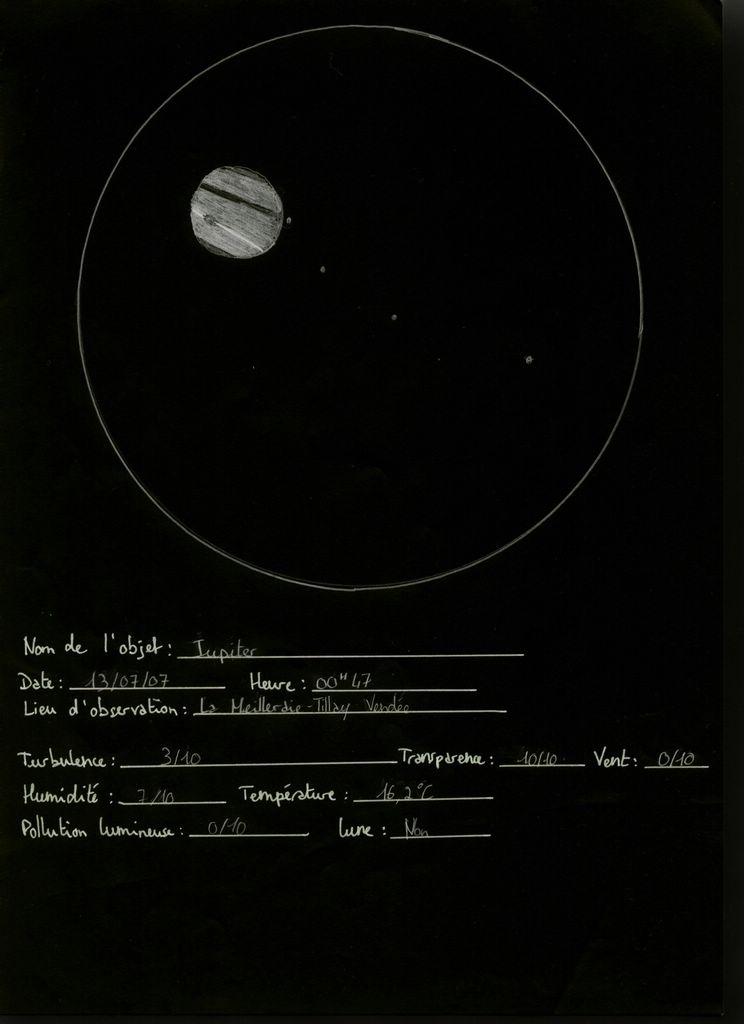 Nom de l'objet : Jupiter
Date : 13/07/07 Heure : 00H47
Lieu d'observation : La Meilleraie-Tillay Vendée
Turbulence : 3/10 Transparence : 10/10 Vent : 0/10
Humidité : 7/10 Température : 16,2°C
Pollution lumineuse : 0/10 Lune : Non